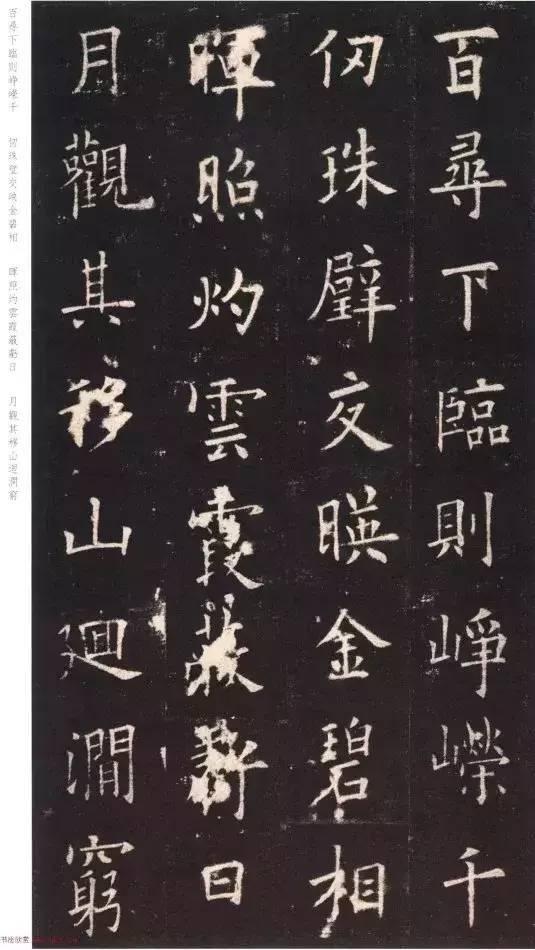 百尋下臨則崢嶸千
仞珠璧交暎金碧相
暉照灼雲霞蔽虧日
月觀其移山廻澗窮
百尋下臨則崢嶸千 仞珠璧交映金碧相 暉照灼雲霞蔽虧日 月觀其移山迴澗窮
书法欣赏